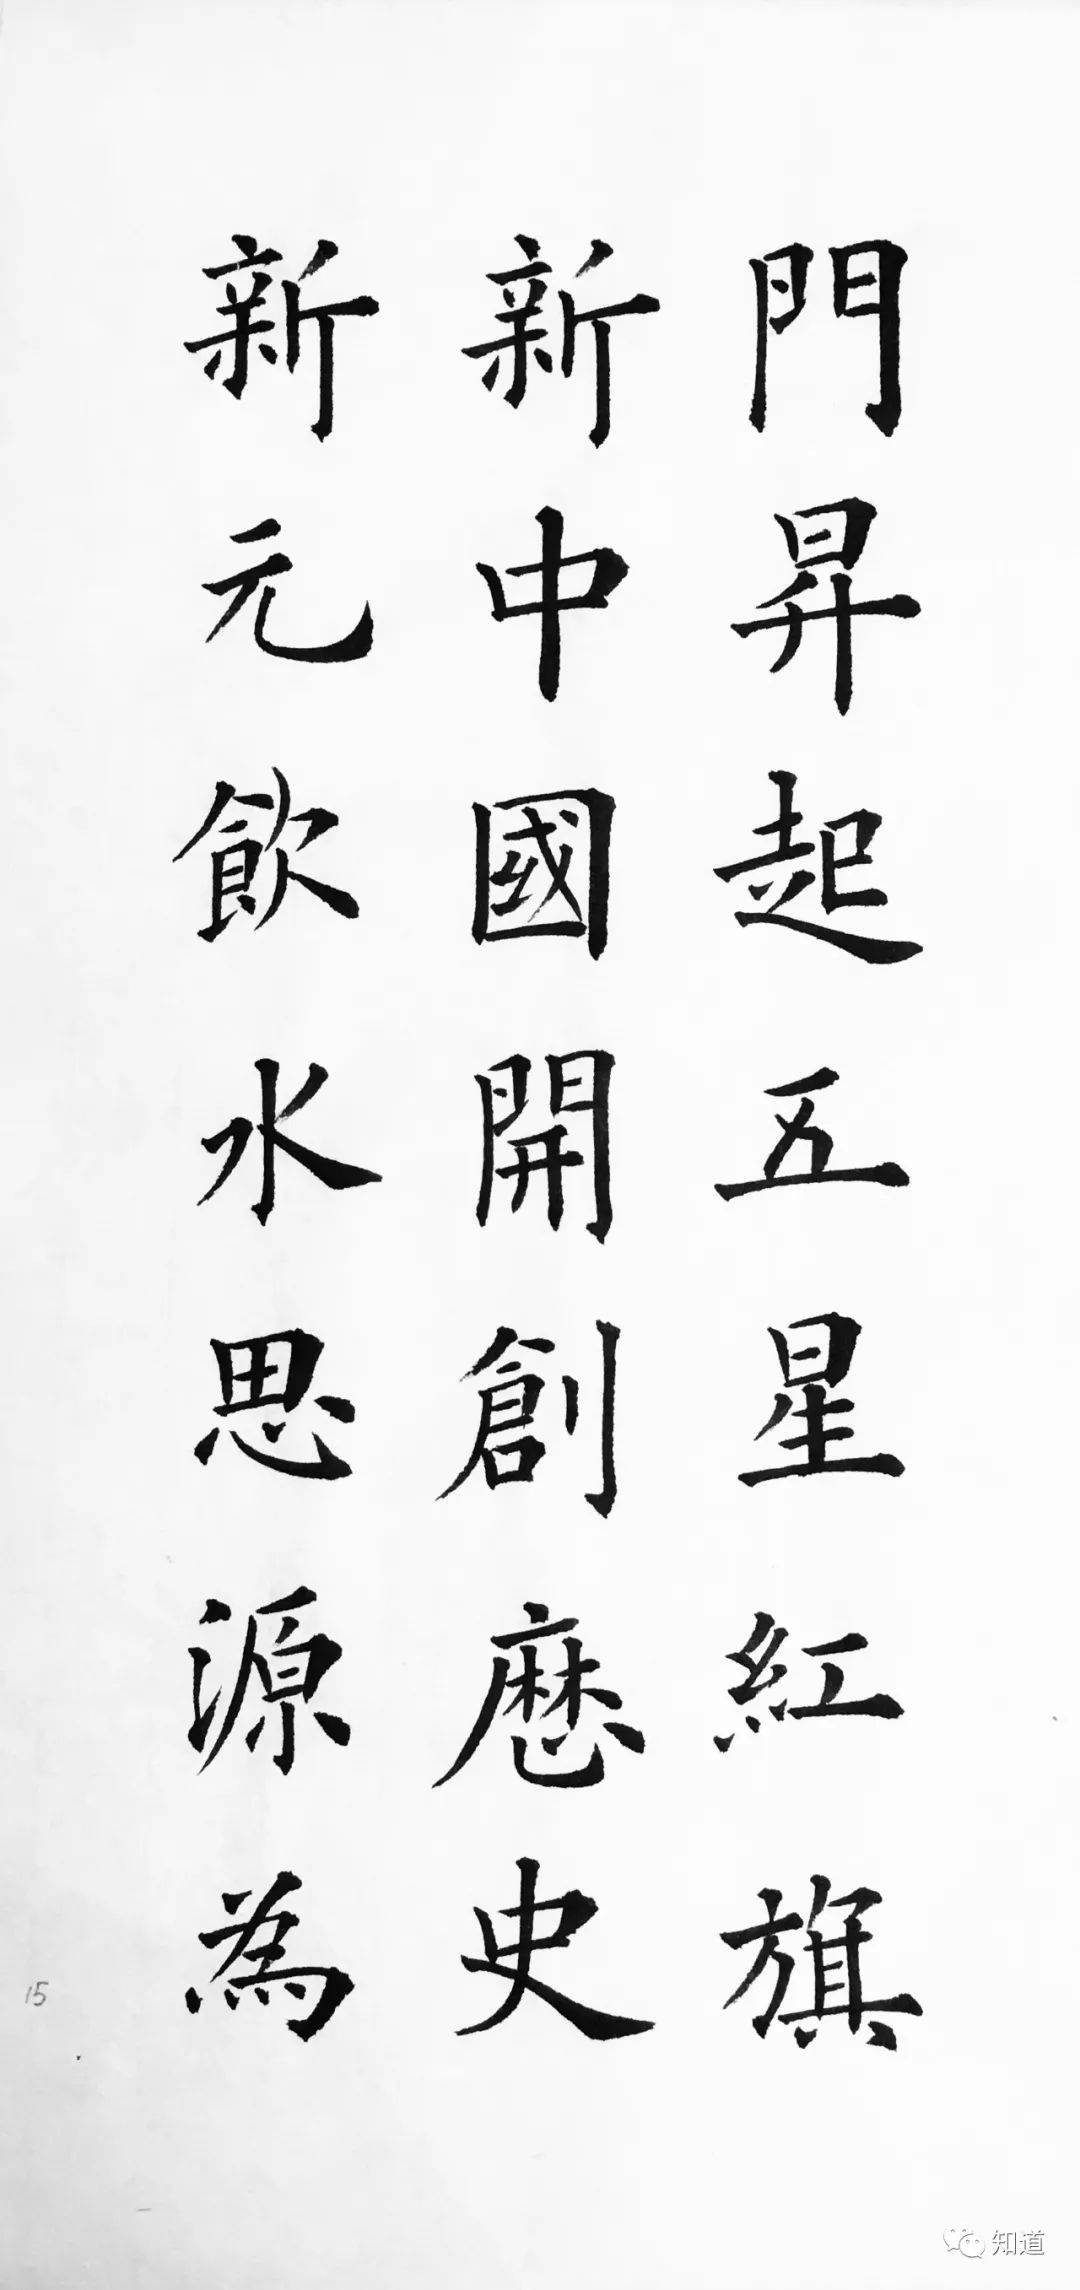 門昇起五星紅旗
新中國開創歷史
新元飲水思源為
15
知道